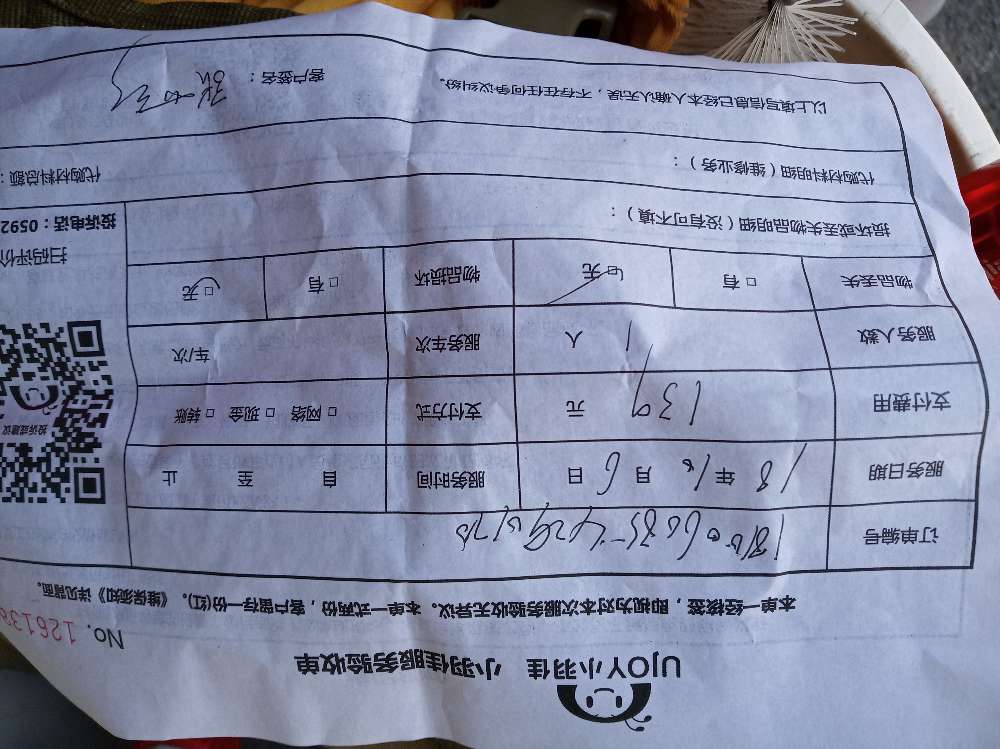 UJOY小羽佳 小羽佳服务验收单
No. 126138
本单一经核签，即视为对本次服务验收无异议。本单一式两份，客户留存一份(红)。《维保须知》详见背面。
订单编号
服务日期 18 年 10 月 6 日 服务时间 自 至 止
支付费用 139 元 支付方式 □ 网络 □ 现金 □ 转账
服务人数 1 人 服务车次 车/次
物品丢失 □ 有 □ 无 物品损坏 □ 有 □ 无
投诉或建议
扫码评价
投诉电话：0592
损坏或丢失物品明细（没有可不填）：
代购材料明细（维修业务）： 代购材料总额：
以上填写信息已经本人确认无误，不存在任何争议纠纷。 客户签名：